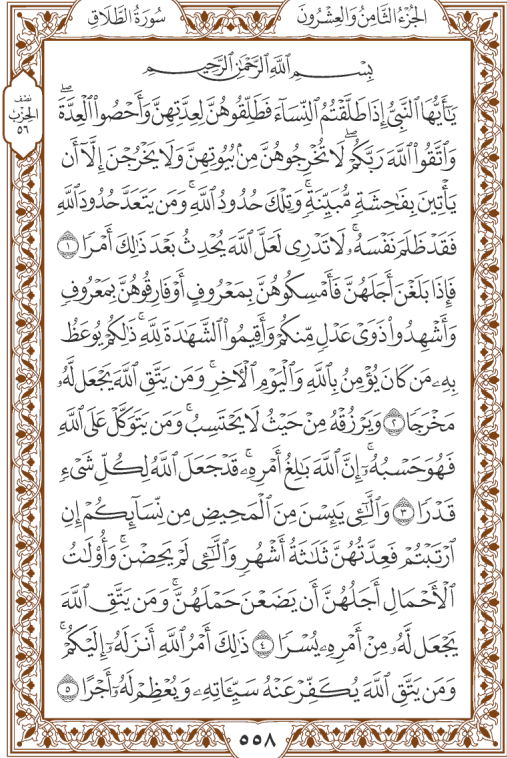 الجُزْءُ الثَّامِنُ وَالعِشْرُونَ
سُورَةُ الطَّلَاقِ
نصف
الحزب
٥٦
بِسْمِ ٱللَّهِ ٱلرَّحْمَٰنِ ٱلرَّحِيمِ
يَٰٓأَيُّهَا ٱلنَّبِىُّ إِذَا طَلَّقْتُمُ ٱلنِّسَآءَ فَطَلِّقُوهُنَّ لِعِدَّتِهِنَّ وَأَحْصُوا۟ ٱلْعِدَّةَ ۖ
وَٱتَّقُوا۟ ٱللَّهَ رَبَّكُمْ ۖ لَا تُخْرِجُوهُنَّ مِنۢ بُيُوتِهِنَّ وَلَا يَخْرُجْنَ إِلَّآ أَن
يَأْتِينَ بِفَٰحِشَةٍ مُّبَيِّنَةٍ ۚ وَتِلْكَ حُدُودُ ٱللَّهِ ۚ وَمَن يَتَعَدَّ حُدُودَ ٱللَّهِ
فَقَدْ ظَلَمَ نَفْسَهُۥ ۚ لَا تَدْرِى لَعَلَّ ٱللَّهَ يُحْدِثُ بَعْدَ ذَٰلِكَ أَمْرًا ١
فَإِذَا بَلَغْنَ أَجَلَهُنَّ فَأَمْسِكُوهُنَّ بِمَعْرُوفٍ أَوْ فَارِقُوهُنَّ بِمَعْرُوفٍ
وَأَشْهِدُوا۟ ذَوَىْ عَدْلٍ مِّنكُمْ وَأَقِيمُوا۟ ٱلشَّهَٰدَةَ لِلَّهِ ۚ ذَٰلِكُمْ يُوعَظُ
بِهِۦ مَن كَانَ يُؤْمِنُ بِٱللَّهِ وَٱلْيَوْمِ ٱلْأَخِرِ ۚ وَمَن يَتَّقِ ٱللَّهَ يَجْعَل لَّهُۥ
مَخْرَجًا ٢ وَيَرْزُقْهُ مِنْ حَيْثُ لَا يَحْتَسِبُ ۚ وَمَن يَتَوَكَّلْ عَلَى ٱللَّهِ
فَهُوَ حَسْبُهُۥٓ ۚ إِنَّ ٱللَّهَ بَٰلِغُ أَمْرِهِۦ ۚ قَدْ جَعَلَ ٱللَّهُ لِكُلِّ شَىْءٍ
قَدْرًا ٣ وَٱلَّٰٓـِٔى يَئِسْنَ مِنَ ٱلْمَحِيضِ مِن نِّسَآئِكُمْ إِنِ
ٱرْتَبْتُمْ فَعِدَّتُهُنَّ ثَلَٰثَةُ أَشْهُرٍ وَٱلَّٰٓـِٔى لَمْ يَحِضْنَ ۚ وَأُو۟لَٰتُ
ٱلْأَحْمَالِ أَجَلُهُنَّ أَن يَضَعْنَ حَمْلَهُنَّ ۚ وَمَن يَتَّقِ ٱللَّهَ
يَجْعَل لَّهُۥ مِنْ أَمْرِهِۦ يُسْرًا ٤ ذَٰلِكَ أَمْرُ ٱللَّهِ أَنزَلَهُۥٓ إِلَيْكُمْ ۚ
وَمَن يَتَّقِ ٱللَّهَ يُكَفِّرْ عَنْهُ سَيِّـَٔاتِهِۦ وَيُعْظِمْ لَهُۥٓ أَجْرًا ٥
٥٥٨